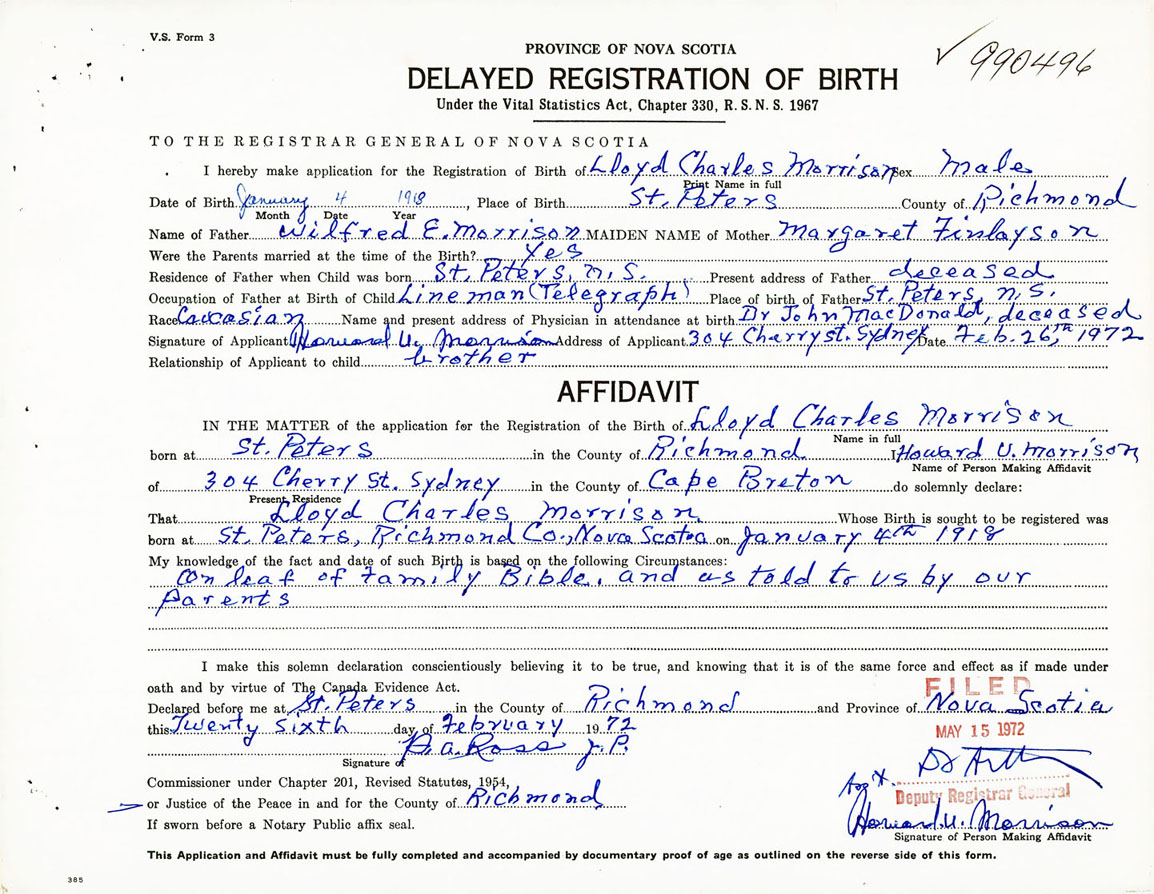 V.S. Form 3
✓ 990496
PROVINCE OF NOVA SCOTIA
DELAYED REGISTRATION OF BIRTH
Under the Vital Statistics Act, Chapter 330, R.S.N.S. 1967
TO THE REGISTRAR GENERAL OF NOVA SCOTIA
I hereby make application for the Registration of Birth of Lloyd Charles Morrison Sex Male
Print Name in full
Date of Birth January 4 1918, Place of Birth St. Peters County of Richmond
Month Date Year
Name of Father Wilfred E. Morrison MAIDEN NAME of Mother Margaret Finlayson
Were the Parents married at the time of the Birth? Yes
Residence of Father when Child was born St. Peters, N.S. Present address of Father deceased
Occupation of Father at Birth of Child Lineman (Telegraph) Place of birth of Father St. Peters, N.S.
Race Caucasian Name and present address of Physician in attendance at birth Dr John MacDonald, deceased
Signature of Applicant Howard U. Morrison Address of Applicant 304 Charry st. Sydney Date Feb. 26th 1972
Relationship of Applicant to child brother
AFFIDAVIT
IN THE MATTER of the application for the Registration of the Birth of Lloyd Charles Morrison
Name in full
born at St. Peters in the County of Richmond I Howard U. Morrison
Name of Person Making Affidavit
of 304 Cherry St. Sydney in the County of Cape Breton do solemnly declare:
Present Residence
That Lloyd Charles Morrison Whose Birth is sought to be registered was
born at St. Peters, Richmond Co., Nova Scotia on January 4th 1918
My knowledge of the fact and date of such Birth is based on the following Circumstances:
on leaf of Family Bible. and as told to us by our
Parents
I make this solemn declaration conscientiously believing it to be true, and knowing that it is of the same force and effect as if made under
oath and by virtue of The Canada Evidence Act.
FILED
Declared before me at St. Peters in the County of Richmond and Province of Nova Scotia
this Twenty Sixth day of February 1972
MAY 15 1972
B. A. Ross J.P.
Signature of
Commissioner under Chapter 201, Revised Statutes, 1954,
Deputy Registrar General
or Justice of the Peace in and for the County of Richmond
Howard U. Morrison
If sworn before a Notary Public affix seal.
Signature of Person Making Affidavit
This Application and Affidavit must be fully completed and accompanied by documentary proof of age as outlined on the reverse side of this form.
385